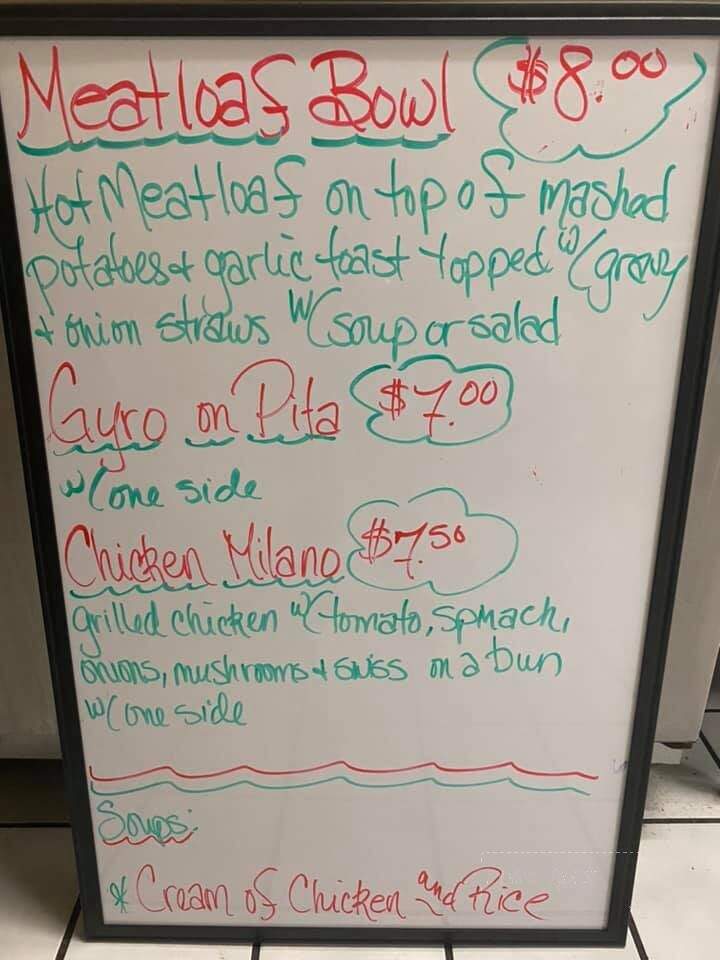 Meatloaf Bowl $8.00
Hot Meatloaf on top of mashed
potatoes + garlic toast topped w/ gravy
+ onion straws w/ soup or salad
Gyro on Pita $7.00
w/ one side
Chicken Milano $7.50
grilled chicken w/ tomato, spinach,
onions, mushrooms + swiss on a bun
w/ one side
Soups:
* Cream of Chicken and Rice